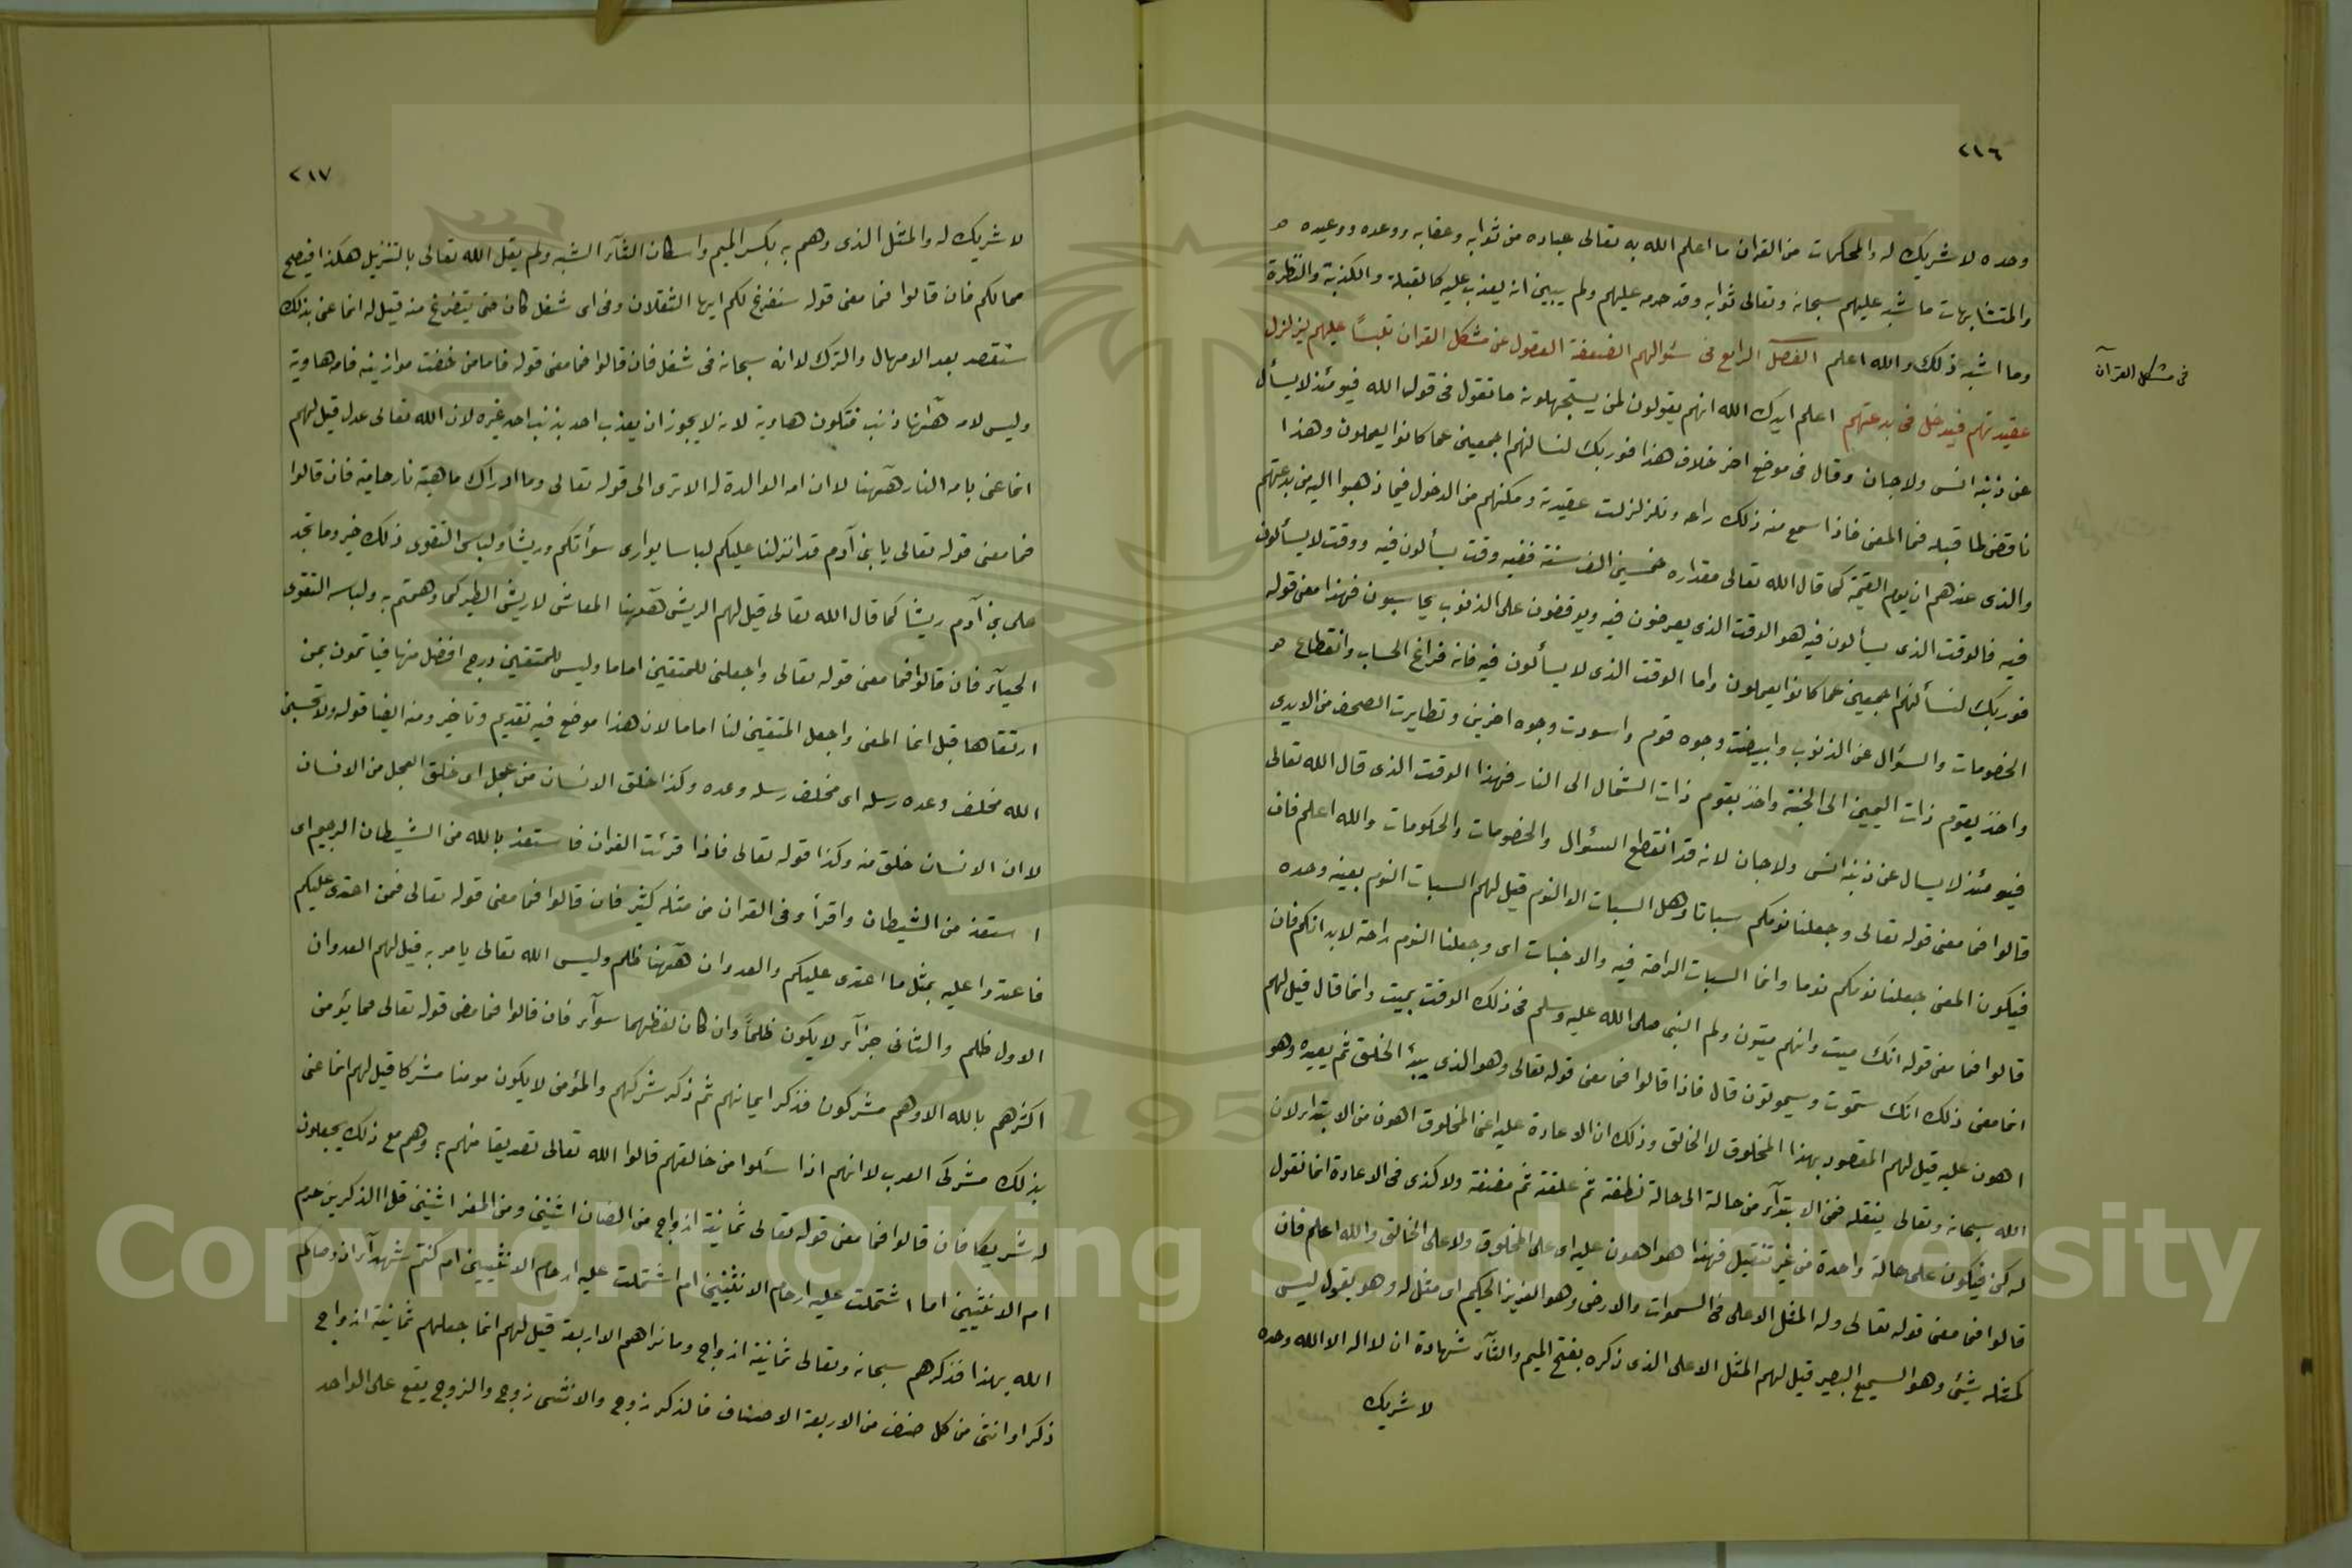 ٢١٦
وحده لا شريك له والمحكمات من القران ما اعلم الله به تعالى عباده من ثوابه وعقابه ووعده ووعيده
والمتشابهات ما شبه عليهم سبحانه وتعالى ثوابه وقد حرمه عليهم ولم يبين انه يعذب عليه كالقبلة والكذبة والنظرة
وما اشبه ذلك والله اعلم الفصل الرابع فى سئوالهم الضعفة العقول عن مشكل القران تلبساً عليهم ليزلزل
فى مشكل القرآن
عقيدتهم فيدخل فى بدعتهم اعلم ايدك الله انهم يقولون لمن يستجهلونه ما تقول فى قول الله فيومئذ لا يسأل
عن ذنبه انس ولا جان وقال فى موضع اخر خلاف هذا فوربك لنسالنهم اجمعين عما كانوا يعملون وهذا
ناقض لما قبله فما المعنى فاذا سمع منه ذلك راعه وتلزلزلت عقيدته ومكنهم من الدخول فيما ذهبوا اليه من بدعتهم
والذى عندهم ان يوم القيمة كما قال الله تعالى مقداره خمسين الف سنة ففيه وقت يسألون فيه ووقت لا يسألون
فيه فالوقت الذى يسألون فيه هو الوقت الذى يعرضون فيه ويوقفون على الذنوب يحاسبون فهذا معنى قوله
فوربك لنسألنهم اجمعين عما كانوا يعملون واما الوقت الذى لا يسألون فيه فانه فراغ الحساب وانقطاع
الخصومات والسؤال عن الذنوب وابيضت وجوه قوم واسودت وجوه اخرين وتطايرت الصحف من الايدى
واخذ بقوم ذات اليمين الى الجنة واخذ بقوم ذات الشمال الى النار فهذا الوقت الذى قال الله تعالى
فيومئذ لا يسال عن ذنبه انس ولا جان لانه قد انقطع السئوال والخصومات والحكومات والله اعلم فان
قالوا فما معنى قوله تعالى وجعلنا نومكم سباتا وهل السبات الا النوم قيل لهم السبات النوم بعينه وحده
فيكون المعنى جعلنا نومكم نوما وانما السبات الراحة فيه والاخبات اى وجعلنا النوم راحة لابدانكم فان
قالوا فما معنى قوله انك ميت وانهم ميتون ولم النبى صلى الله عليه وسلم فى ذلك الوقت بميت وانما قال قيل لهم
انما معنى ذلك انك ستموت وسيموتون قال فاذا قالوا فما معنى قوله تعالى وهو الذى يبدؤ الخلق ثم يعيده وهو
اهون عليه قيل لهم المقصود بهذا المخلوق لا الخالق وذلك ان الاعادة عليه اعنى المخلوق اهون من الابتداء لان
الله سبحانه وتعالى ينقله فى الابتداء من حالة الى حالة نطفة ثم علقة ثم مضغة ولا كذى فى الاعادة انما نقول
له كن فيكون على حالة واحدة من غير تنقيل فهذا هو اهون عليه اى على المخلوق ولا على الخالق والله اعلم فان
قالوا فما معنى قوله تعالى وله المثل الاعلى فى السموات والارض وهو العزيز الحكيم اى مثل له وهو يقول ليس
كمثله شيئ وهو السميع البصير قيل لهم المثل الاعلى الذى ذكره بفتح الميم والثاء شهادة ان لا اله الا الله وحده
لا شريك
٢١٧
لا شريك له والمثل الذى وهم به بكسر الميم واسكان الثاء الشبه ولم يقل الله تعالى بالتنزيل هكذا فيصح
محالكم فان قالوا فما معنى قوله سنفرغ لكم ايها الثقلان وفى اى شغل كان حتى يتفرغ منه قيل له انما عنى بذلك
سنقصد بعد الامهال والترك لا انه سبحانه فى شغل فان قالوا فما معنى قوله فاما من خفت موازينه فامه هاوية
وليس لامه هٓهنا ذنب فتكون هاوية لانه لا يجوز ان يعذب احد بذنب احد غيره لان الله تعالى عدل قيل لهم
انما عنى بامه النار هٓهنا لا ان امه الوالدة له الا ترى الى قوله تعالى وما ادراك ما هيه نار حامية فان قالوا
فما معنى قوله تعالى يا بنى آدم قد انزلنا عليكم لباسا يوارى سوآتكم وريشا ولباس التقوى ذلك خير وما نجد
على بنى آدم ريشا كما قال الله تعالى قيل لهم الريش هٓهنا المعاش لا ريش الطير كما وهمتم به ولباسه التقوى
الحياء فان قالوا فما معنى قوله تعالى واجعلنى للمتقين اماما وليس للمتقين درج افضل منها فيأتمون بمن
ارتقاها قيل انما المعنى واجعل المتقين لنا اماما لان هذا موضع فيه تقديم وتاخير ومنه ايضا قوله ولا تحسبن
الله مخلف وعده رسله اى مخلف رسله وعده وكذا خلق الانسان من عجل اى خلق العجل من الانسان
لا ان الانسان خلق منه وكذا قوله تعالى فاذا قرئت القران فاستعذ بالله من الشيطان الرجيم اى
استعذ من الشيطان واقرأ وفى القران من مثله كثير فان قالوا فما معنى قوله تعالى فمن اعتدى عليكم
فاعتدوا عليه بمثل ما اعتدى عليكم والعدوان هٓهنا ظلم وليس الله تعالى يامر به قيل لهم العدوان
الاول ظلم والثانى جزآء لا يكون ظلماً وان كان لفظهما سوآء فان قالوا فما معنى قوله تعالى فما يؤمن
اكثرهم بالله الا وهم مشركون فذكر ايمانهم ثم ذكر شركهم والمؤمن لا يكون مومنا مشركا قيل لهم انما عنى
بذلك مشركى العرب لانهم اذا سئلوا من خالقهم قالوا الله تعالى تصديقا منهم به وهم مع ذلك يجعلون
له شريكا فان قالوا فما معنى قوله تعالى ثمانية ازواج من الضان اثنين ومن المعز اثنين قل الذكرين حرم
ام الانثيين اما اشتملت عليه ارحام الانثيين ام اشتملت عليه ارحام الانثيين ام كنتم شهدآء اذ وصاكم
الله بهذا فذكرهم سبحانه وتعالى ثمانية ازواج وما نراهم الا اربعة قيل لهم انما جعلهم ثمانية ازواج
ذكرا وانثى من كل صنف من الاربعة الاصناف فالذكر زوج والانثى زوج والزوج يقع على الواحد
Copyright © King Saud University
1957